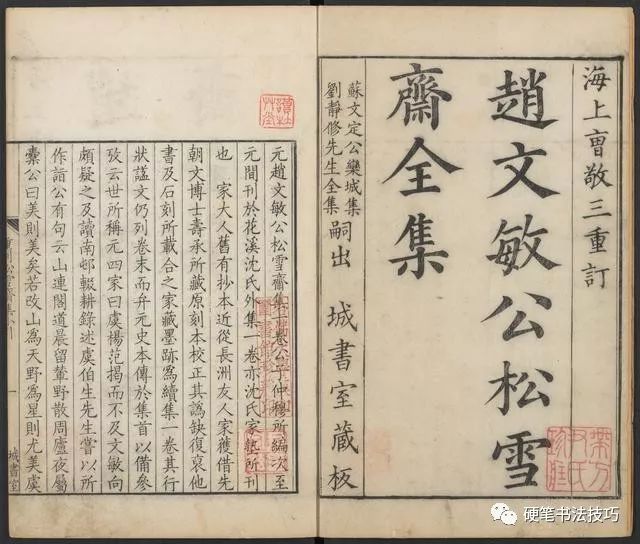 海上曹敬三重訂
趙文敏公松雪
齋全集
蘇文定公欒城集
劉靜修先生全集
嗣出
城書室藏板
元趙文敏公松雪齋集十卷公子仲穆所編次至
元間刊於花溪沈氏外集一卷亦沈氏家塾所刊
也 家大人舊有抄本近從長洲友人家獲借先
朝文博士壽承所藏原刻本校正其譌缺復裒他
書及石刻所載合之家藏墨跡為續集一卷其行
狀謚文仍列卷末而弁元史本傳於集首以備參
攷云世所稱元四家曰虞楊范揭而不及文敏向
頗疑之及讀南邨輟耕錄述虞伯生先生嘗以所
作詣公有句云山連閣道晨留輦野散周廬夜屬
櫜公曰美則美矣若改山為天野為星則尤美虞
一
城書室
硬笔书法技巧